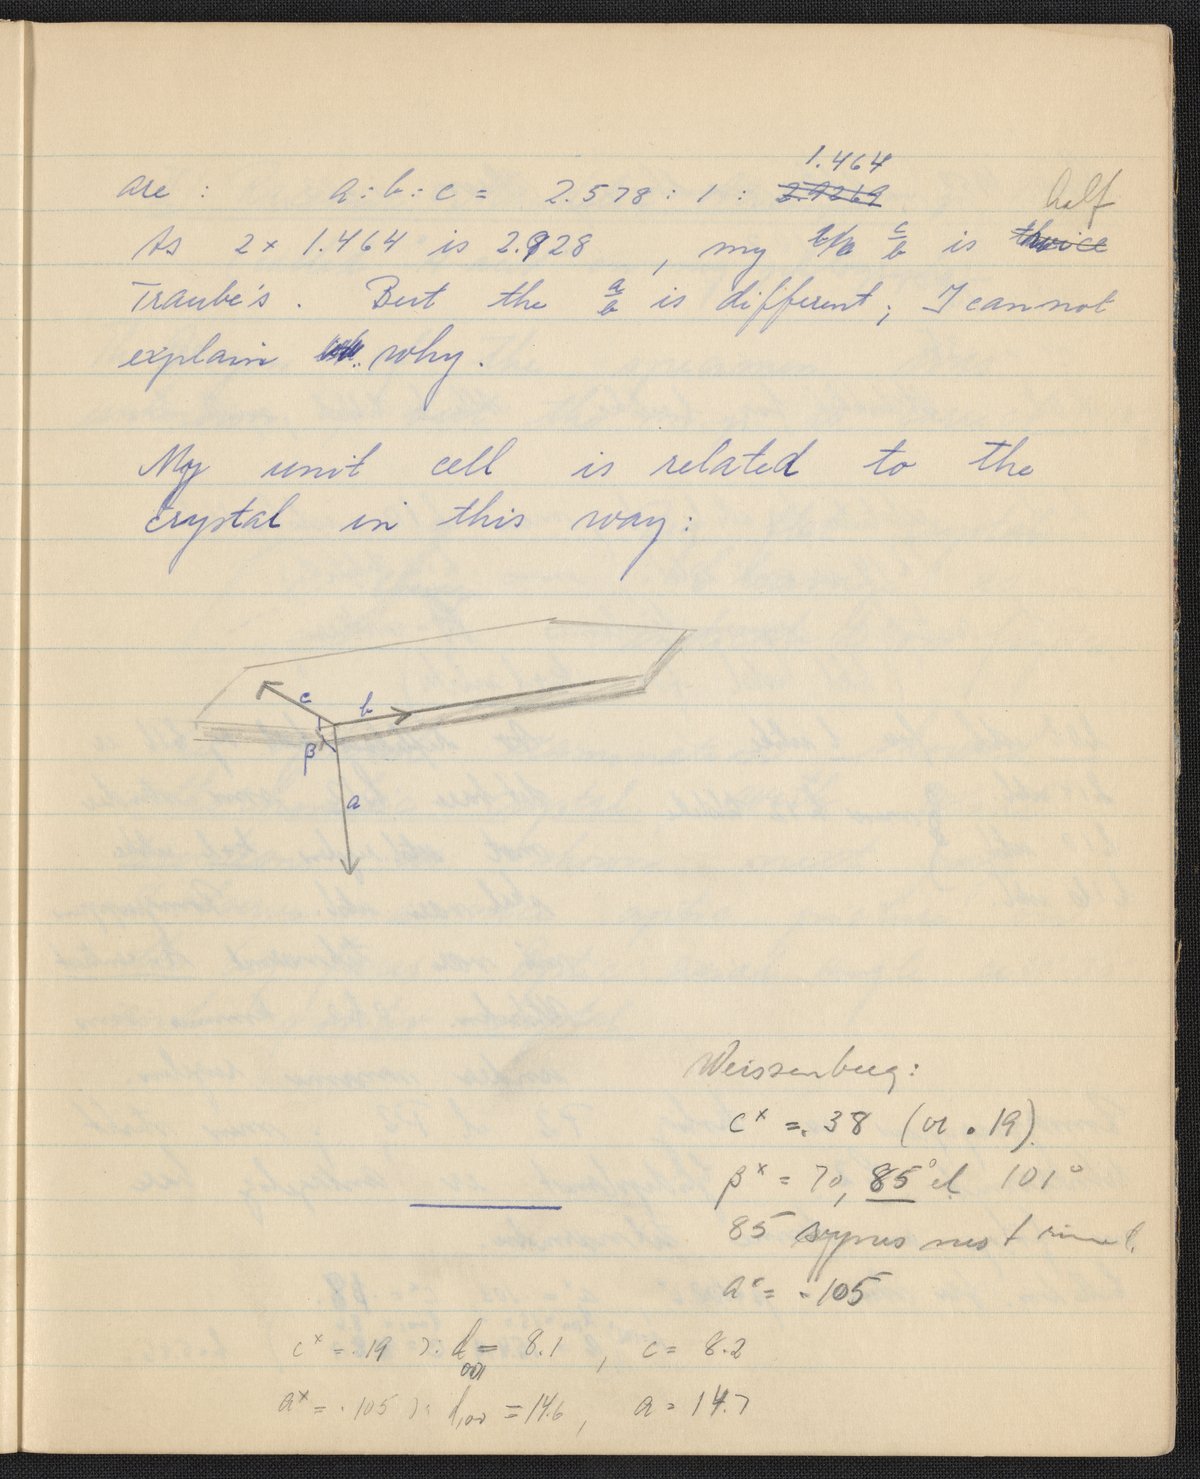 1.464
are : a : b : c = 2.578 : 1 : 2.9269 half
As 2 × 1.464 is 2.928 , my b/a c/b is twice
Traube's . But the a/b is different; I cannot
explain why.
My unit cell is related to the
crystal in this way:
c b
β
a
Weissenberg:
c× = .38 (or .19).
β× = 70, 85° el. 101°
85 synes mest
a× = .105
c× = .19 ɔ: d001 = 8.1 , c = 8.2
a× = .105 ɔ: d100 = 14.6 , a = 14.7